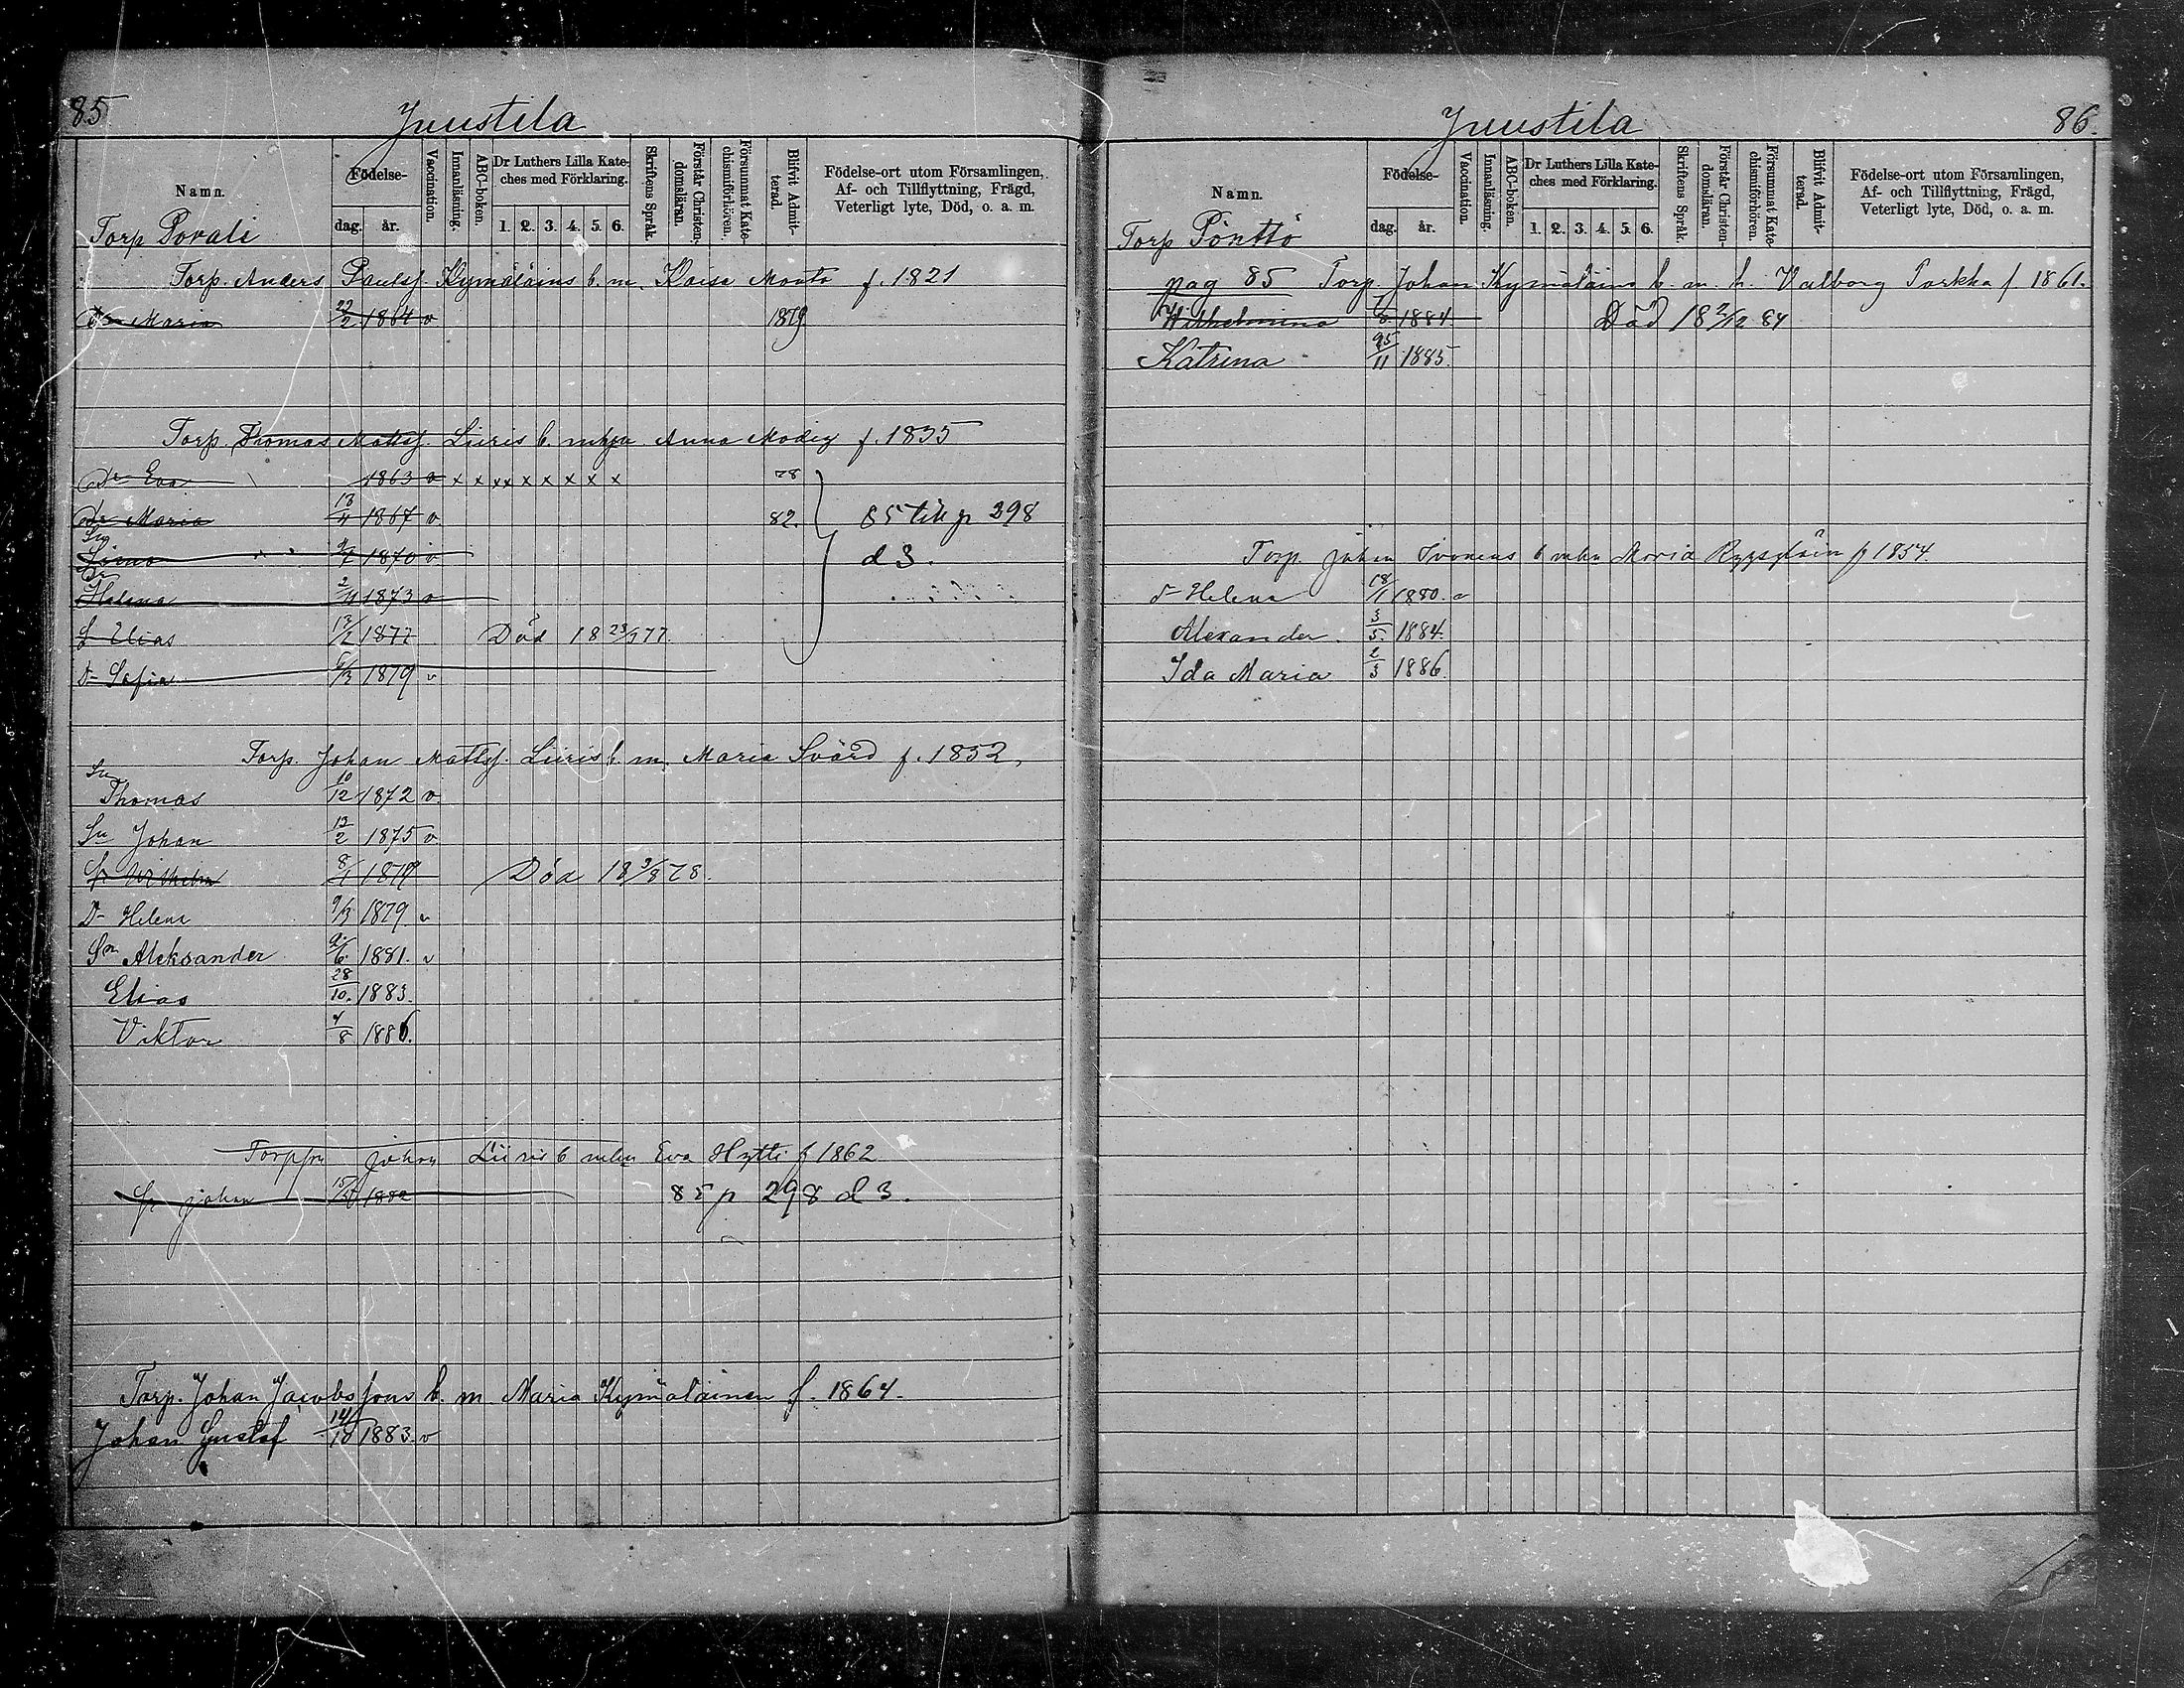 85
Juustila
Namn.
Födelse-
dag. år.
Vaccination.
Innanläsning.
ABC-boken.
Dr Luthers Lilla Kate-
ches med Förklaring.
1. 2. 3. 4. 5. 6.
Skriftens Språk.
Förstår Christen-
domsläran.
Försummat Kate-
chismiförhören.
Blifvit Admit-
terad.
Födelse-ort utom Församlingen,
Af- och Tillflyttning, Frägd,
Veterligt lyte, Död, o. a. m.
Torp Porali
Torp. Anders Paulsf. Kymäläins b. m. Kaisa Monto f. 1821
Dr Maria 22/2 1864 v 1879
Torp. Thomas Mattsf. Liiris b. mhja Anna Modig f. 1835
Dr Eva 1863 v x x x x x x x x x 78
Dr Maria 13/4 1867 v 82. 85 till p 298
Sn Simo 9/7 1870 v d 3.
Dr Helena 2/11 1873 v
S Elias 13/2 1877 Död 18 23/7 77
Dr Sofia 6/3 1879 v
Torp. Johan Mattsf. Liiris b. m. Maria Svärd f. 1852,
Sn Thomas 10/12 1872 v.
Sn Johan 13/2 1875 v
Sn Wilhelm 8/1 1879 Död 18 3/8 78.
Dr Helena 9/3 1879 v
Sn Aleksander 9/6. 1881. v
Elias 28/10. 1883.
Viktor 4/8 1886.
Torpsn Johan Liiris b mhn Eva Hytti f 1862
Sn johan 15/5 1882 85 p 298 d 3.
Torp. Johan Jacobs fons b. m. Maria Kymäläinen f. 1864.
Johan Gustaf 14/10 1883. v
Juustila
86.
Namn.
Födelse-
dag. år.
Vaccination.
Innanläsning.
ABC-boken.
Dr Luthers Lilla Kate-
ches med Förklaring.
1. 2. 3. 4. 5. 6.
Skriftens Språk.
Förstår Christen-
domsläran.
Försummat Kate-
chismiförhören.
Blifvit Admit-
terad.
Födelse-ort utom Församlingen,
Af- och Tillflyttning, Frägd,
Veterligt lyte, Död, o. a. m.
Torp Pönttö
pag 85 Torp. Johan Kymäläins b. m. h. Valborg Parkka f. 1861.
Wilhelmina 1884 Död 18 2/12 84
Katrina 25/11 1885.
Torp. Johan Ivonens b mhn Maria f 1854.
Dr Helena 18/1 1880. v
Alexander 3/5. 1884.
Ida Maria 2/3 1886.